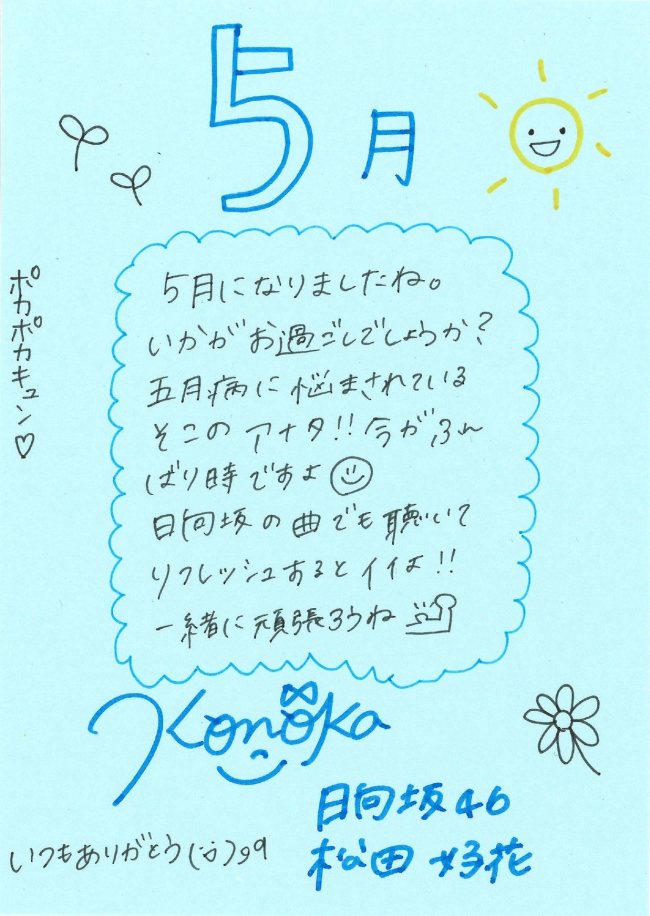 5月
ポカポカキュン♡
5月になりましたね。
いかがお過ごしでしょうか?
五月病に悩まされている
そこのアナタ!!今がふん
ばり時ですよ
日向坂の曲でも聴いて
リフレッシュするとイイよ!!
一緒に頑張ろうね
Konoka
日向坂46
松田好花
いつもありがとう